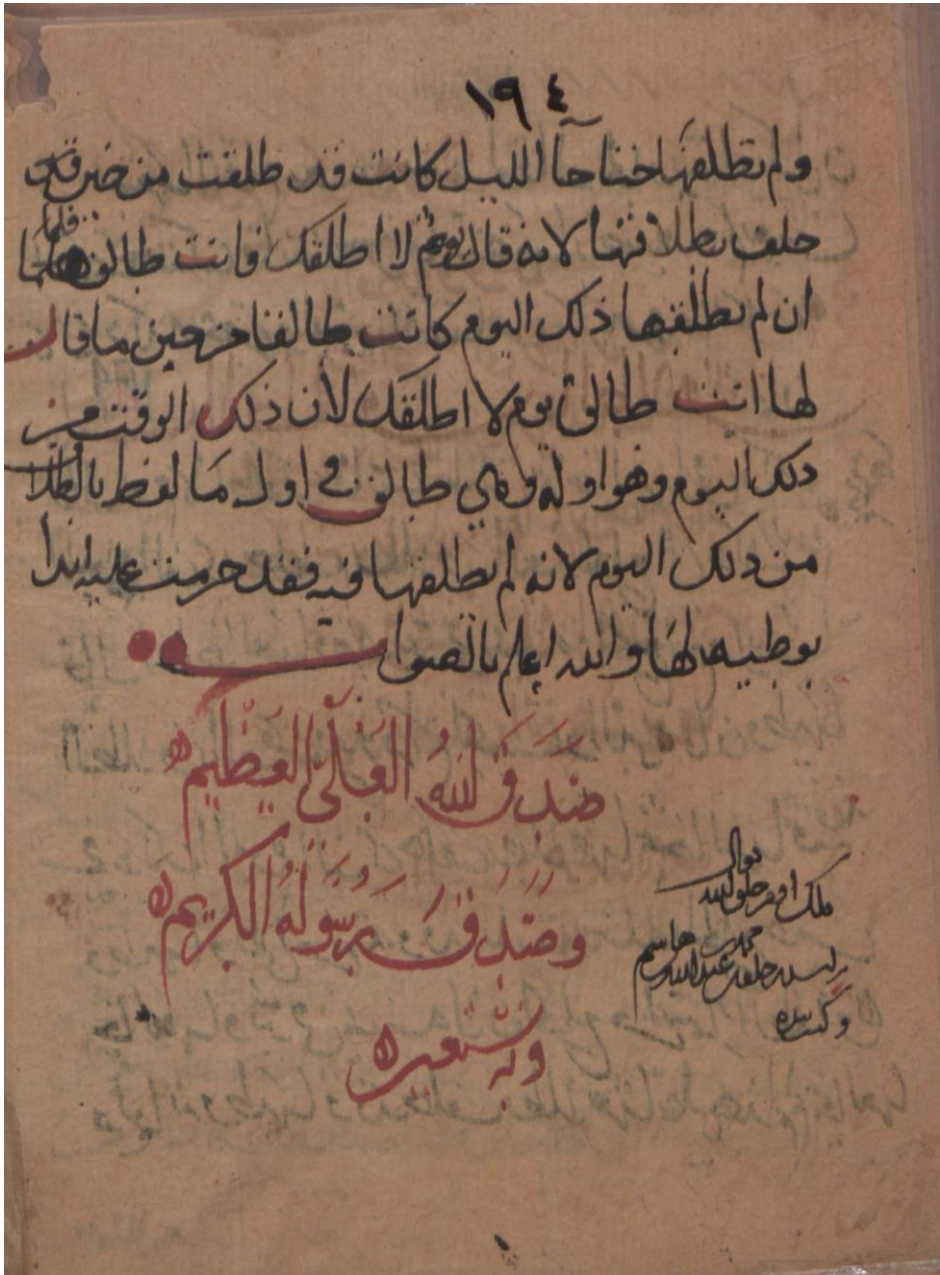 ١٩٤
ولم يطلقها حتى جآ الليل كانت قد طلقت من حين
حلف بطلاقها لانه قال يوم لا اطلقك فانت طالق فلما
ان لم يطلقها ذلك اليوم كانت طالقا من حين ما قال
لها انت طالق يوم لا اطلقك لان ذلك الوقت من
ذلك اليوم وهو اوله وهي طالق في اول ما لفظ بالطلاق
من ذلك اليوم لانه لم يطلقها فيه فقد حرمت عليه ابدا
بوطيه لها والله اعلم بالصواب
صَدَقَ اللهُ العَلِيّ العَظِيم
وصَدَقَ رَسُولهُ الكريم
وبه نستعين
ملك خلق الله
محمد بن هاشم
عبد الله
وكتب بيده